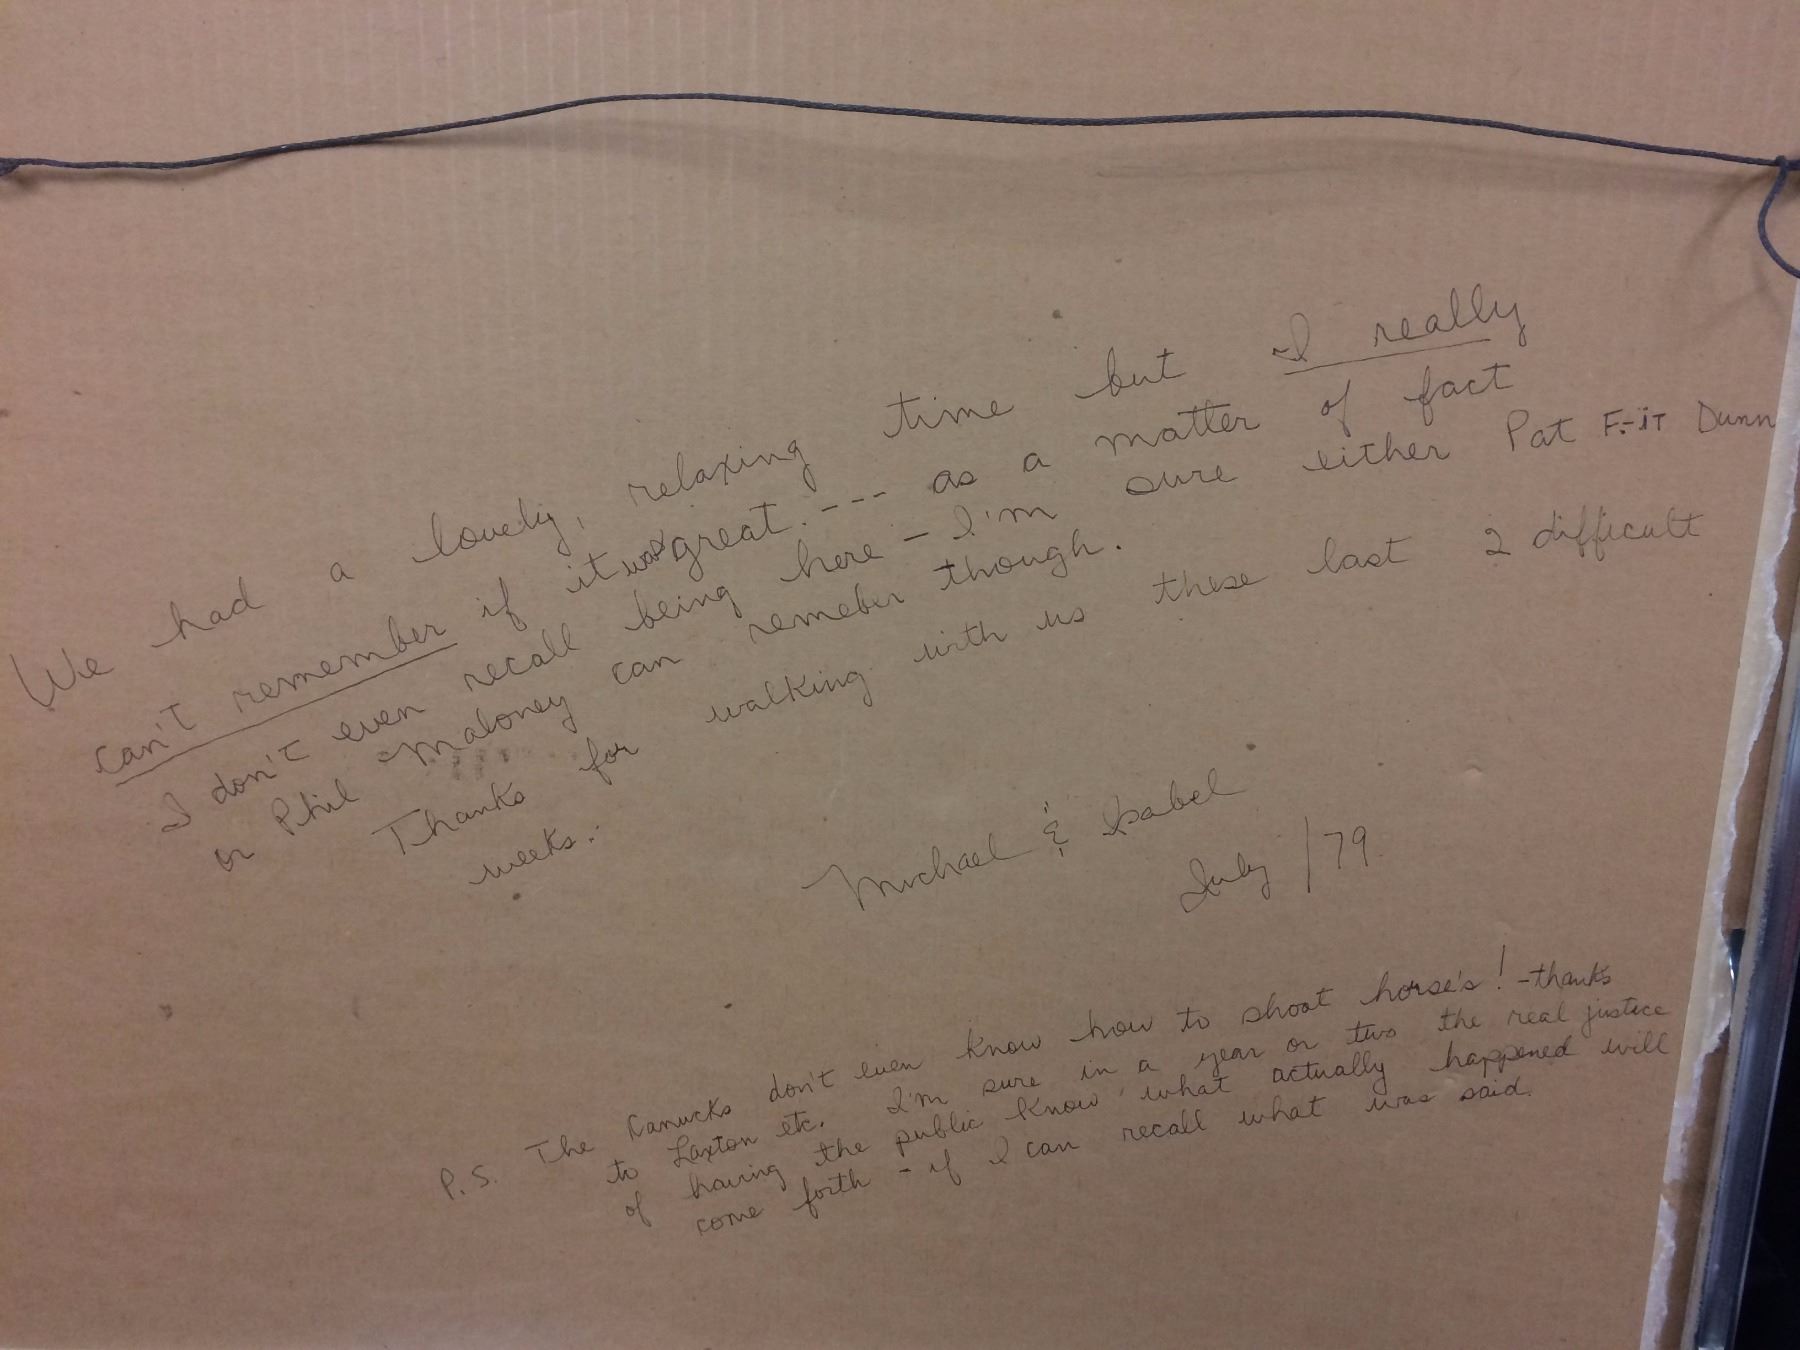 We had a lovely, relaxing time but I really
can't remember if it was great. --- as a matter of fact
I don't even recall being here - I'm sure either Pat F.-it Dunn
or Phil Maloney can remeber though.
Thanks for walking with us these last 2 difficult
weeks.
Michael & Isabel
July /79
P.S. The Canucks don't even know how to shoot horse's! - thanks
to Laxton etc. I'm sure in a year or two the real justice
of having the public know what actually happened will
come forth - if I can recall what was said.